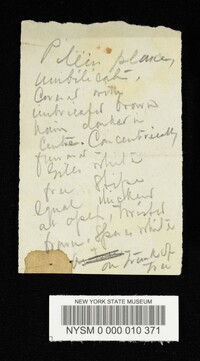 Pileus plane,
umbilicate,
covered with
imbricated brown
hairs darker in
centre. Concentrically
furrowed
Gills white
free Stipe
equal
at apex,
brown. Spores white
on trunk of
tree
NEW YORK STATE MUSEUM
NYSM 0 000 010 371